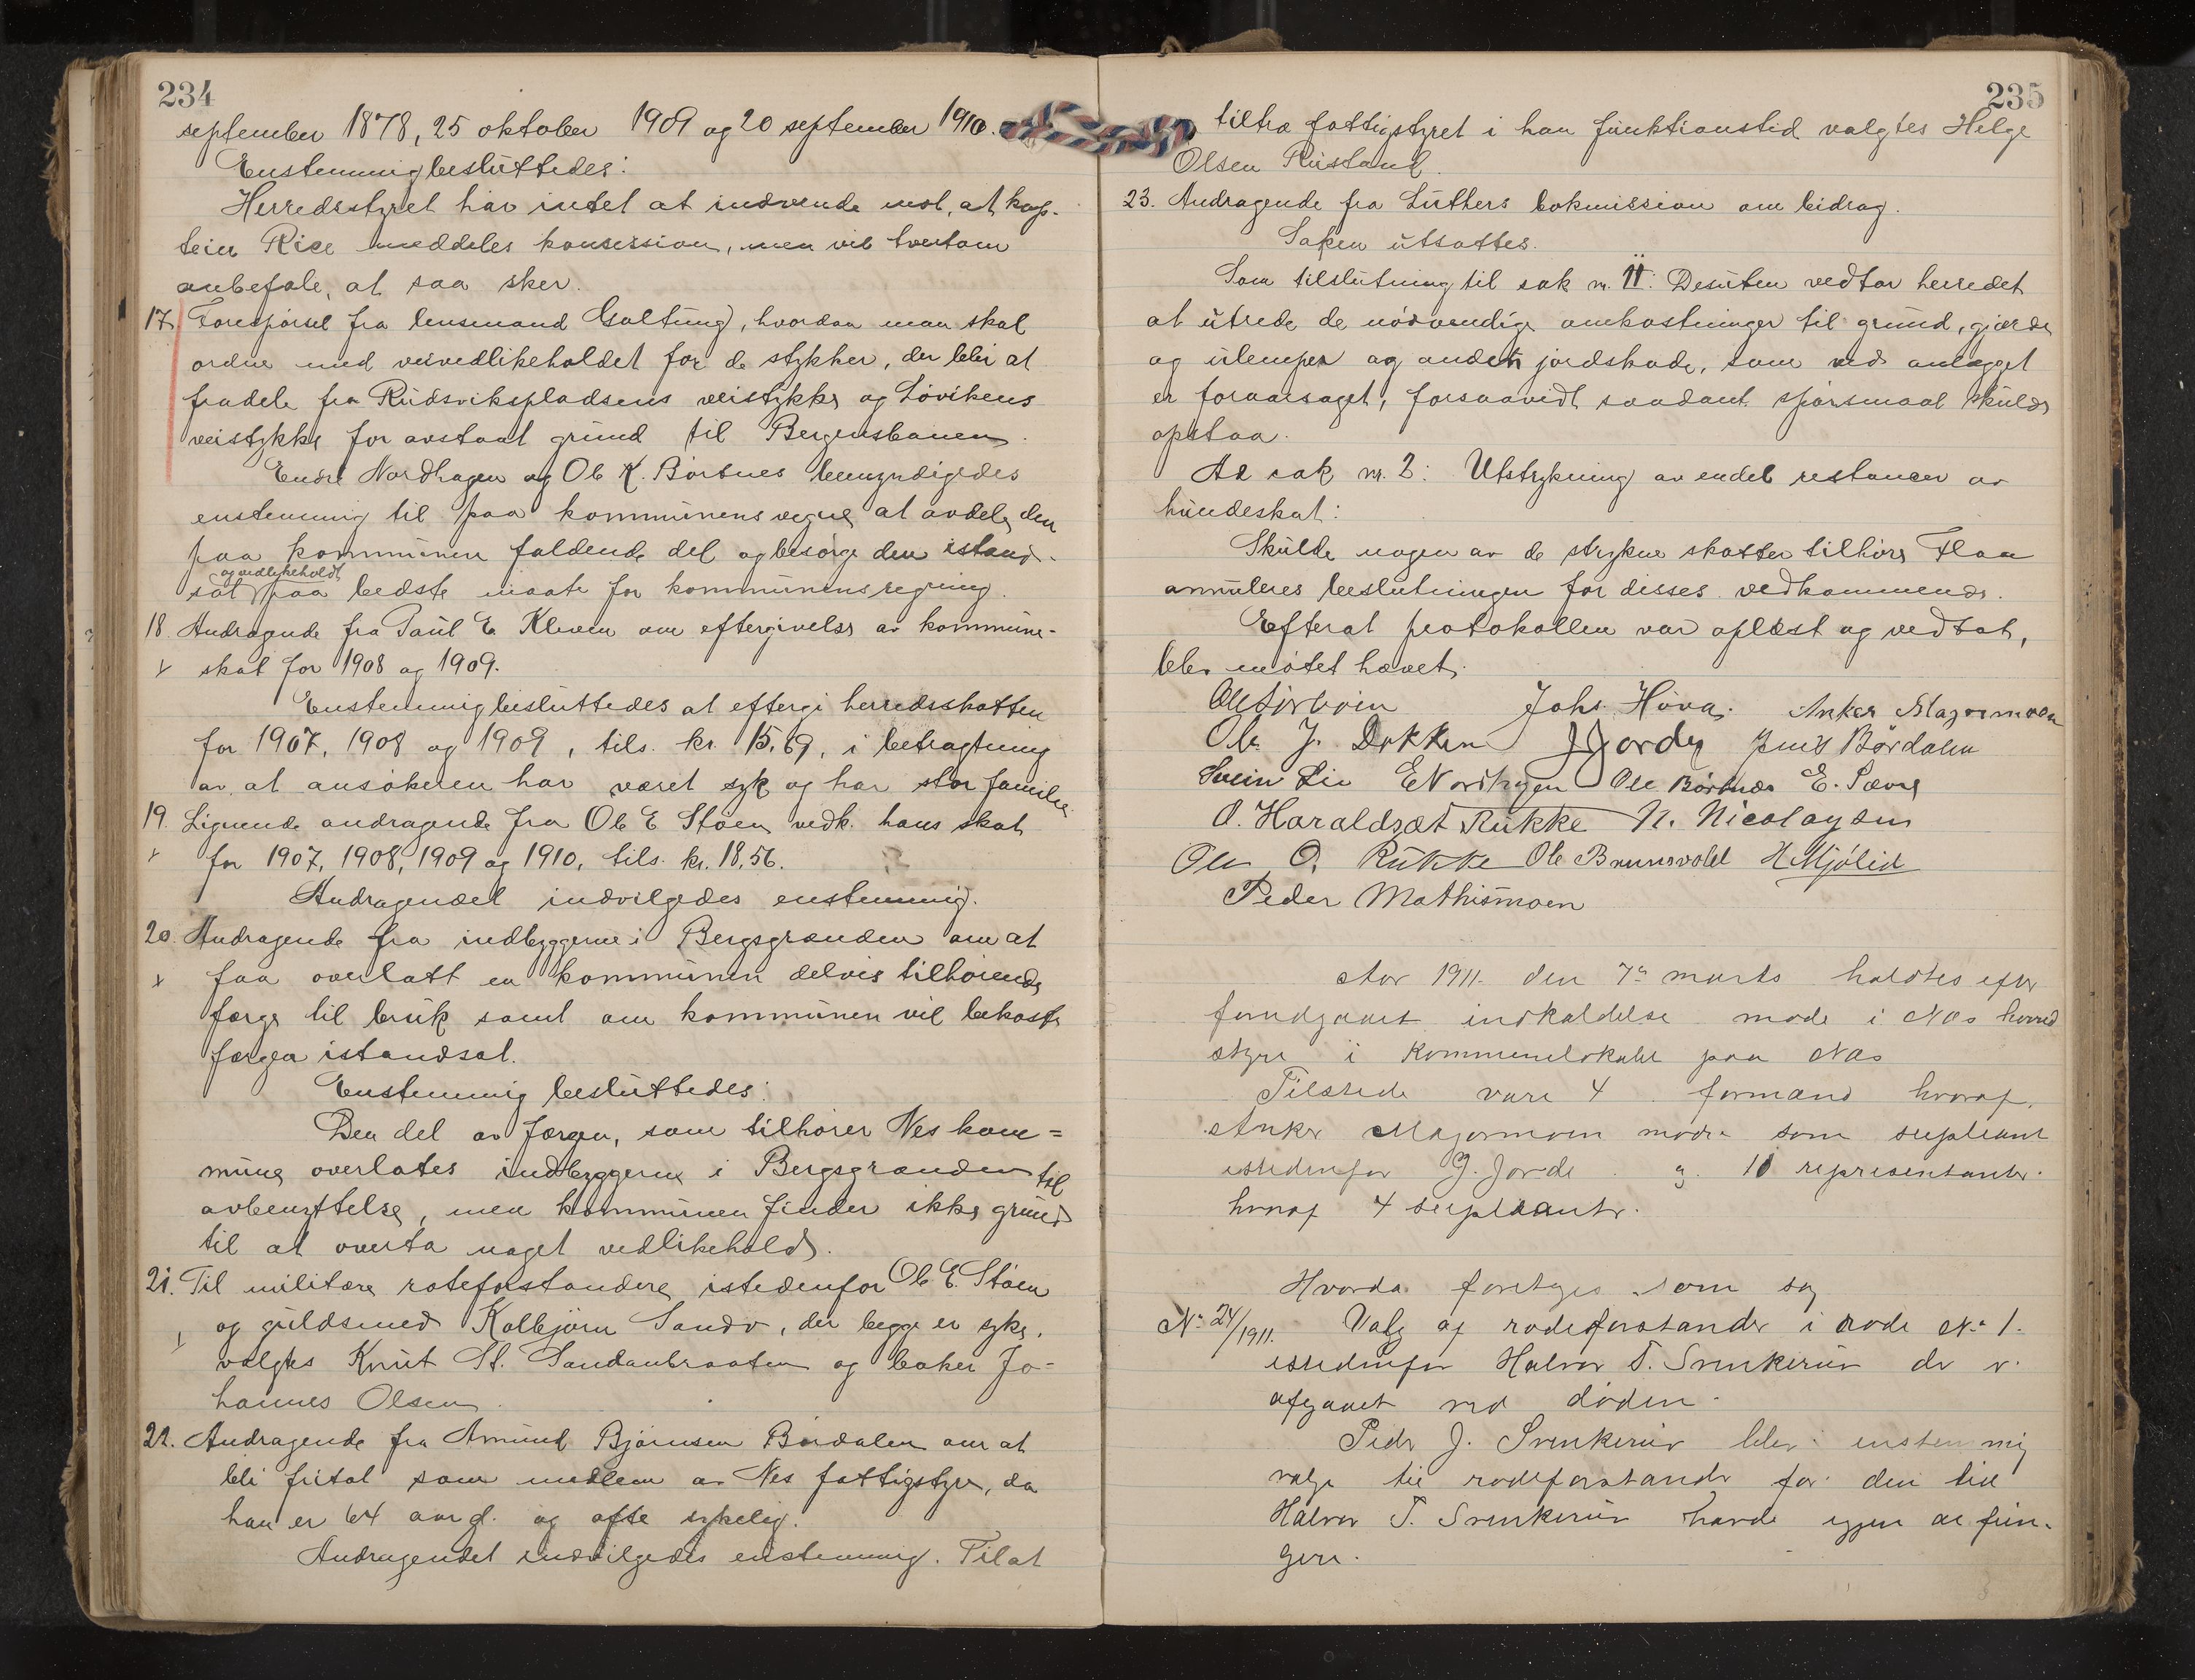 234
september 1878, 25 oktober 1909 og 20 september 1910.
Enstemmig besluttedes:
Herredsstyret har intet at indvende mot, at kap-
tein Rice meddeles konsession, men vil tvertom
anbefale, at saa sker.
17. Forespørsel fra lensmand Galtung, hvordan man skal
ordne med veivedlikeholdet for de stykker, der blir at
fradele fra Rudsvikspladsens veistykke og Løvikens
veistykke for avstaat grund til Bergensbanen.
Endre Nordhagen og Ole K. Børtnes bemyndigedes
enstemmig til paa kommunens vegne at avdele den
paa kommunen faldende del og besørge den istand-
og vedlikeholdt
sat paa bedste maate for kommunens regning.
18. Andragende fra Paul E. Kleven om eftergivelse av kommune-
x skat for 1908 og 1909.
Enstemmig besluttedes at eftergi herredsskatten
for 1907, 1908 og 1909, tils. kr. 15,69, i betragtning
av at ansøkeren har været syk og har stor familie
19. Lignende andragende fra Ole E Støen vedk. hans skat
x for 1907, 1908, 1909 og 1910, tils. kr. 18,56.
Andragendet indvilgedes enstemmig.
20. Andragende fra indbyggerne i Bergsgrænden om at
x faa overlatt en kommunen delvis tilhørende
færge til bruk samt om kommunen vil bekoste
færgen istandsat.
Enstemmig besluttedes:
Den del av færgen, som tilhører Nes kom=
mune overlates indbyggerne i Bergsgrænden til
avbenyttelse, men kommunen finder ikke grund
til at overta noget vedlikehold.
21. Til militære roteforstandere istedenfor Ole E. Støen
x og guldsmed Kolbjørn Sando, der begge er syke,
valgtes Knut St. Sandanbraaten og baker Jo-
hannes Olsen.
22. Andragende fra Amund Bjørnsen Børdalen om at
bli fritat som medlem av Nes fattigstyre, da
han er 64 aar gl. og ofte sykelig.
Andragendet indvilgedes enstemmig. Til at
235
tiltræ fattigstyret i han funktionstid valgtes Helge
Olsen Rustand.
23. Andragende fra Luthers bokmission om bidrag.
Saken utsattes.
Som tilslutning til sak nr. 11: Desuten vedtar herredet
at utrede de nødvendige omkostninger til grund, gjærde
og ulemper og anden jordskade, som ved anlægget
er foraarsaget, forsaavidt saadant spørsmaal skulde
opstaa.
Ad sak nr. 2: Utstrykning av endel restancer av
hundeskat:
Skulde nogen av de strykne skatter tilhøre Flaa
annuleres beslutningen for disses vedkommende.
Efterat protokollen var oplæst og vedtat,
blev møtet hævet.
Johs. Høva. Anker Magormoen
Ole J. Dokken J Jorde Jens Børdalen
Svein Lie E Nordhagen Ole Børtnes E. Sævre
O. Haraldset Rukke N. Nicolaysen
Ole O. Rukke Ole Brunsvold H Mjølid
Peder Mathismoen
Aar 1911. den 7de marts holdtes efter
forudgaaet indkaldelse møde i Næs herred
styre i kommunelokalet paa Næs
Tilstede vare 4 formænd hvoraf
Anker Magormoen møder som supleant
istedenfor J. Jorde og 10 representanter.
hvoraf 4 supleanter.
Hvorda foretoges som sag
No 24/1911. Valg af rodeforstander i rode No 1.
istedenfor Halvor T. Svenkerud der er
afgaaet ved døden.
Peder J. Svenkerud blev enstemmig
valgt til rodeforstander for den tid
Halvor T. Svenkerud havde igjen at fun-
gere.